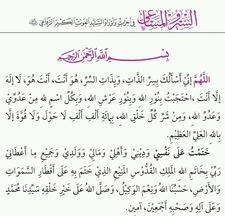 السر المصون
بسم الله الرحمن الرحيم
اللَّهُمَّ إِنِّي أَسْأَلُكَ بِسِرِّ الذَّاتِ، وَبِذَاتِ السِّرِّ، هُوَ أَنْتَ، أَنْتَ هُوَ، لَا إِلَهَ
إِلَّا أَنْتَ، احْتَجَبْتُ بِنُورِ اللهِ وَبِنُورِ عَرْشِ اللهِ، وَبِكُلِّ اسْمٍ لِلهِ مِنْ عَدُوِّي
وَعَدُوِّ اللهِ، وَمِنْ شَرِّ كُلِّ خَلْقِ اللهِ، بِمِائَةِ أَلْفِ أَلْفِ لَا حَوْلَ وَلَا قُوَّةَ إِلَّا
بِاللهِ الْعَلِيِّ الْعَظِيمِ.
خَتَمْتُ عَلَى نَفْسِي وَدِينِي وَأَهْلِي وَمَالِي وَوَلَدِي وَجَمِيعِ مَا أَعْطَانِي
رَبِّي بِخَاتَمِ اللهِ الْمَلِكِ الْقُدُّوسِ الْمَنِيعِ الَّذِي خَتَمَ بِهِ عَلَى أَقْطَارِ السَّمَوَاتِ
وَالْأَرْضِ، حَسْبُنَا اللهُ وَنِعْمَ الْوَكِيلُ، وَصَلَّى اللهُ عَلَى خَيْرِ خَلْقِهِ سَيِّدِنَا مُحَمَّدٍ
وَعَلَى آلِهِ وَصَحْبِهِ أَجْمَعِينَ، آمِين.